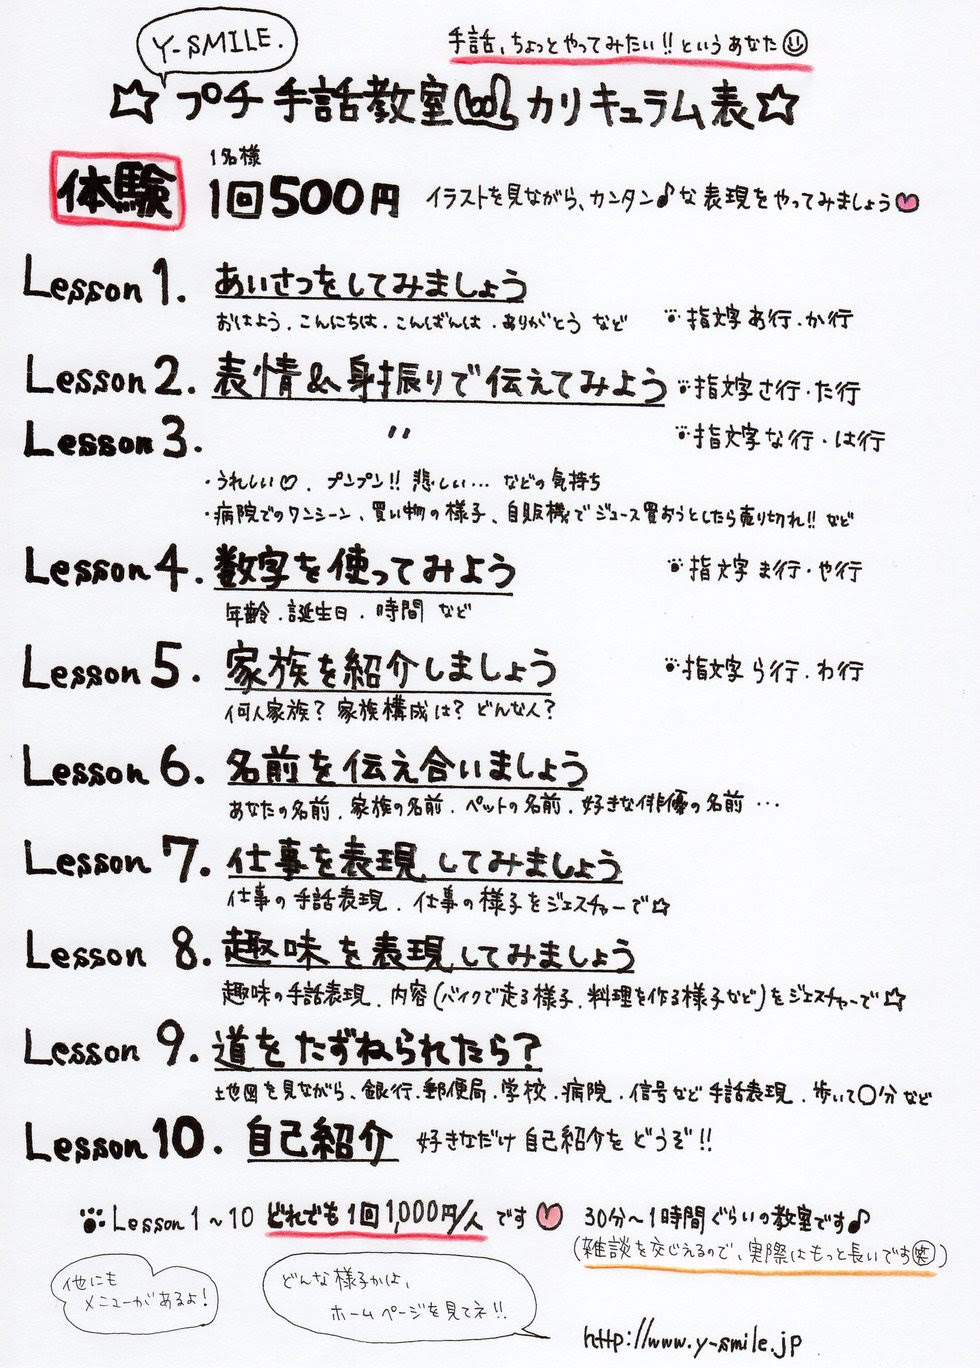 Y-SMILE.
手話、ちょっとやってみたい!!というあなた
☆プチ手話教室 カリキュラム表☆
体験
1名様
1回500円 イラストを見ながら、カンタン♪な表現をやってみましょう
Lesson 1. あいさつをしてみましょう
おはよう.こんにちは.こんばんは.ありがとう など 指文字 あ行.か行
Lesson 2. 表情&身振りで伝えてみよう 指文字 さ行.た行
Lesson 3. 〃 指文字 な行.は行
・うれしい♡. プンプン!! 悲しい… などの気持ち
・病院でのワンシーン、買い物の様子、自販機でジュース買おうとしたら売り切れ!! など
Lesson 4. 数字を使ってみよう 指文字 ま行.や行
年齢.誕生日.時間 など
Lesson 5. 家族を紹介しましょう 指文字 ら行.わ行
何人家族? 家族構成は? どんな人?
Lesson 6. 名前を伝え合いましょう
あなたの名前.家族の名前.ペットの名前.好きな俳優の名前…
Lesson 7. 仕事を表現してみましょう
仕事の手話表現.仕事の様子をジェスチャーで☆
Lesson 8. 趣味を表現してみましょう
趣味の手話表現.内容(バイクで走る様子.料理を作る様子など)をジェスチャーで☆
Lesson 9. 道をたずねられたら?
地図を見ながら、銀行.郵便局.学校.病院.信号など手話表現.歩いて〇分など
Lesson 10. 自己紹介 好きなだけ自己紹介をどうぞ!!
Lesson 1~10 どれでも1回1,000円/人です 30分~1時間ぐらいの教室です♪
(雑談を交じえるので、実際はもっと長いです笑)
他にも
メニューがあるよ!
どんな様子かは、
ホームページを見てネ!!
http://www.y-smile.jp